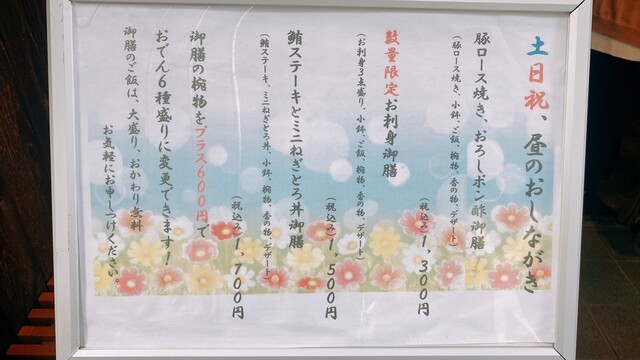 土日祝、昼のおしながき
豚ロース焼き、おろしポン酢御膳
(豚ロース焼き、小鉢、ご飯、椀物、香の物、デザート)
(税込み)1,300円
数量限定お刺身御膳
(お刺身3点盛り、小鉢、ご飯、椀物、香の物、デザート)
(税込み)1,500円
鮪ステーキとミニねぎとろ丼御膳
(鮪ステーキ、ミニねぎとろ丼、小鉢、椀物、香の物、デザート)
(税込み)1,700円
御膳の椀物をプラス600円で
おでん6種盛りに変更できます!
御膳のご飯は、大盛り、おかわり無料
お気軽にお申しつけください。